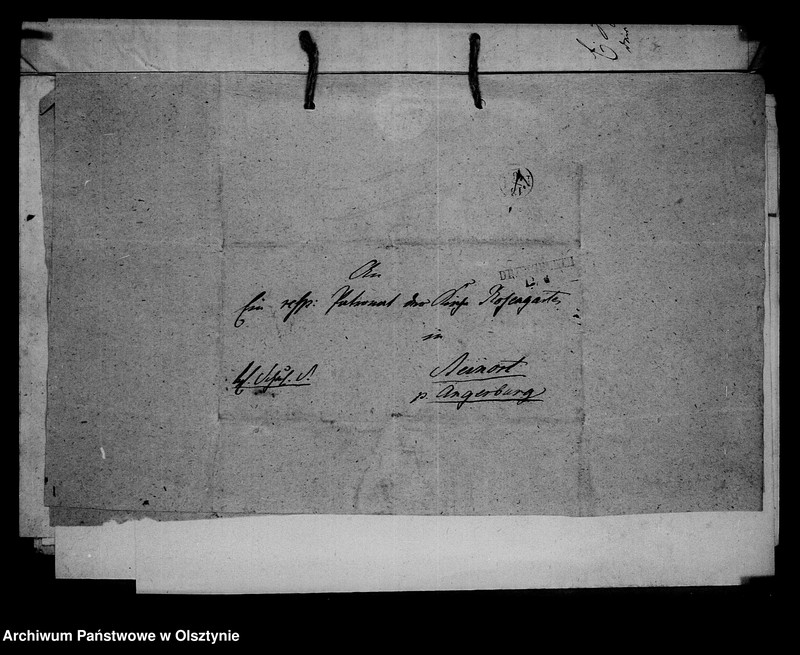 An
Ein resp: Patronat der Kirche Rosengarten
in
Steinort
p. Angerburg
Archiwum Państwowe w Olsztynie